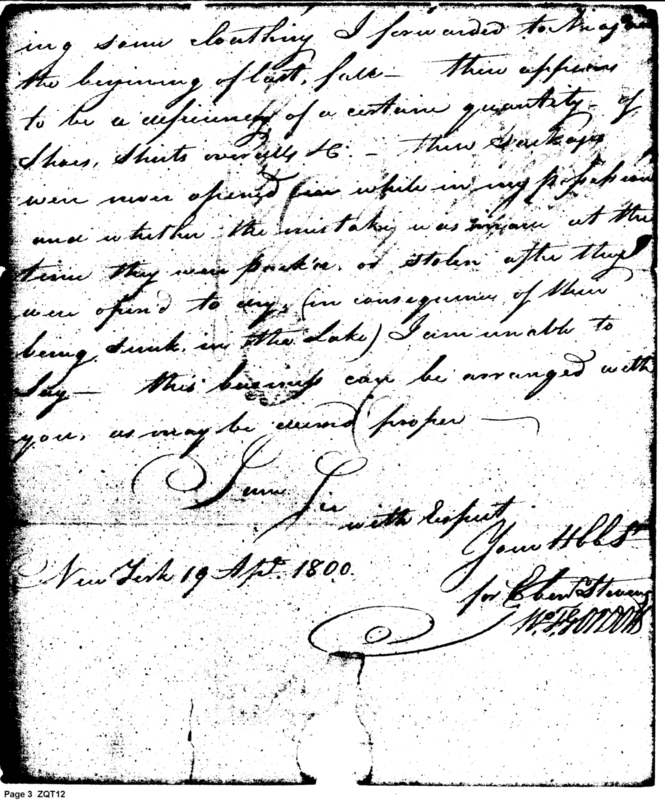 ing some cloathing I forwarded to Niagara
the begining of last, fall — there appears
to be a deficiency of a certain quantity of
Shoes, Shirts overalls &c. — these packages
were never opened while in my possession
and whether the mistake was made at the
time they were pack'd, or stolen after they
were open'd to dry, (in consequence of their
being Sunk in the Lake) I am unable to
Say — this business can be arranged with
you, as may be deemd proper —
I am Sir
with Respect
Your Hble St
New York 19 Apl. 1800.
for Eben Stevens
Page 3 ZQT12